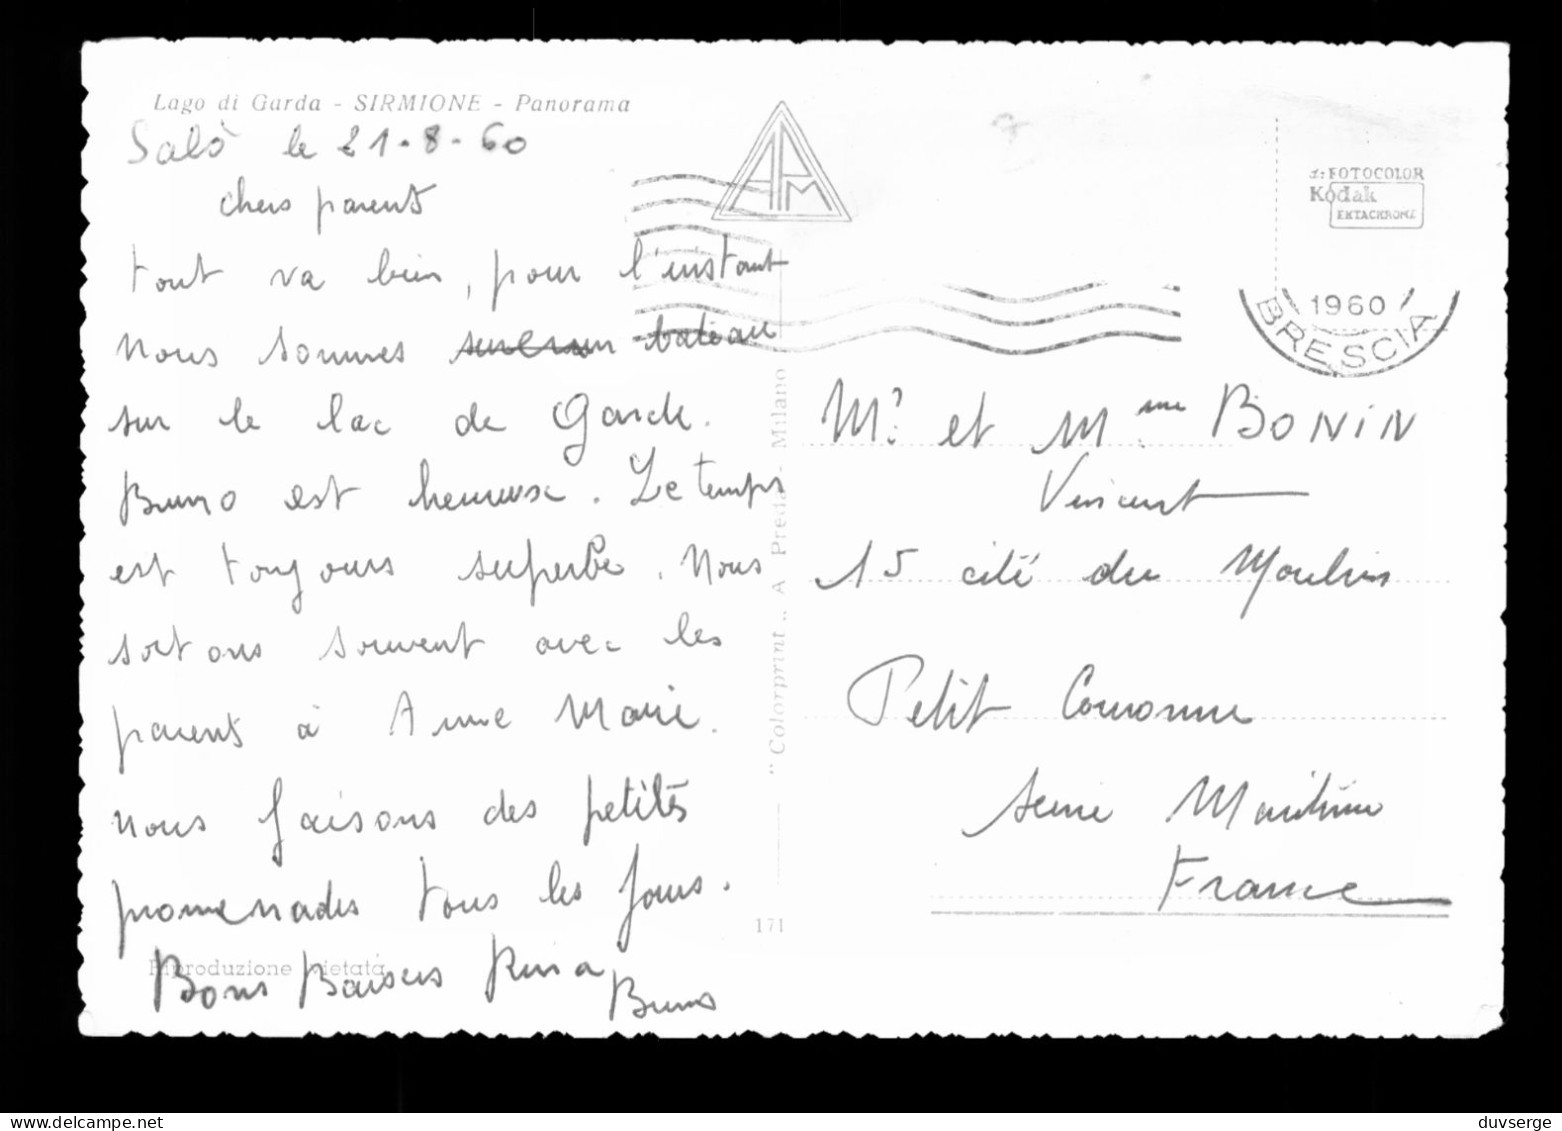 Lago di Garda - SIRMIONE - Panorama
Salò le 21-8-60
chers parents
tout va bien, pour l'instant
nous sommes sur un bateau
sur le lac de Garde.
Bruno est heureuse. Le temps
est toujours superbe. Nous
sortons souvent avec les
parents à Anne Marie.
nous faisons des petites
promenades tous les jours.
Bons Baisers Rina
Bruno
Riproduzione vietata
"Colorprint„ A Preda - Milano
171
APM
da FOTOCOLOR
Kodak
EKTACHROME
1960
BRESCIA
Mr et Mme BONIN
Vincent
15 cité du Moulin
Petit Couronne
Seine Maritime
France
duvserge